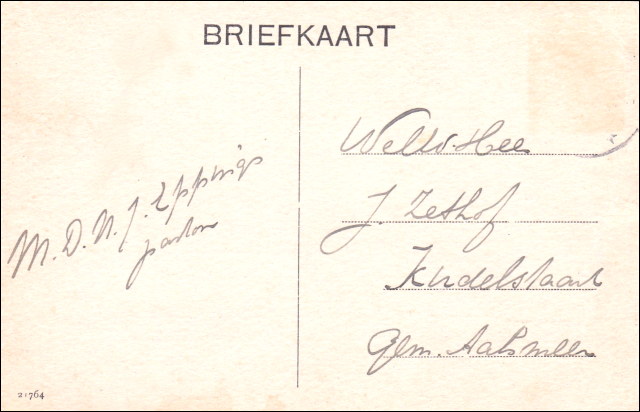 BRIEFKAART
M. D. N. J. Eppings
pastor
WelEd. Heer
J. Zethof
Kudelstaart
Gem. Aalsmeer
21764